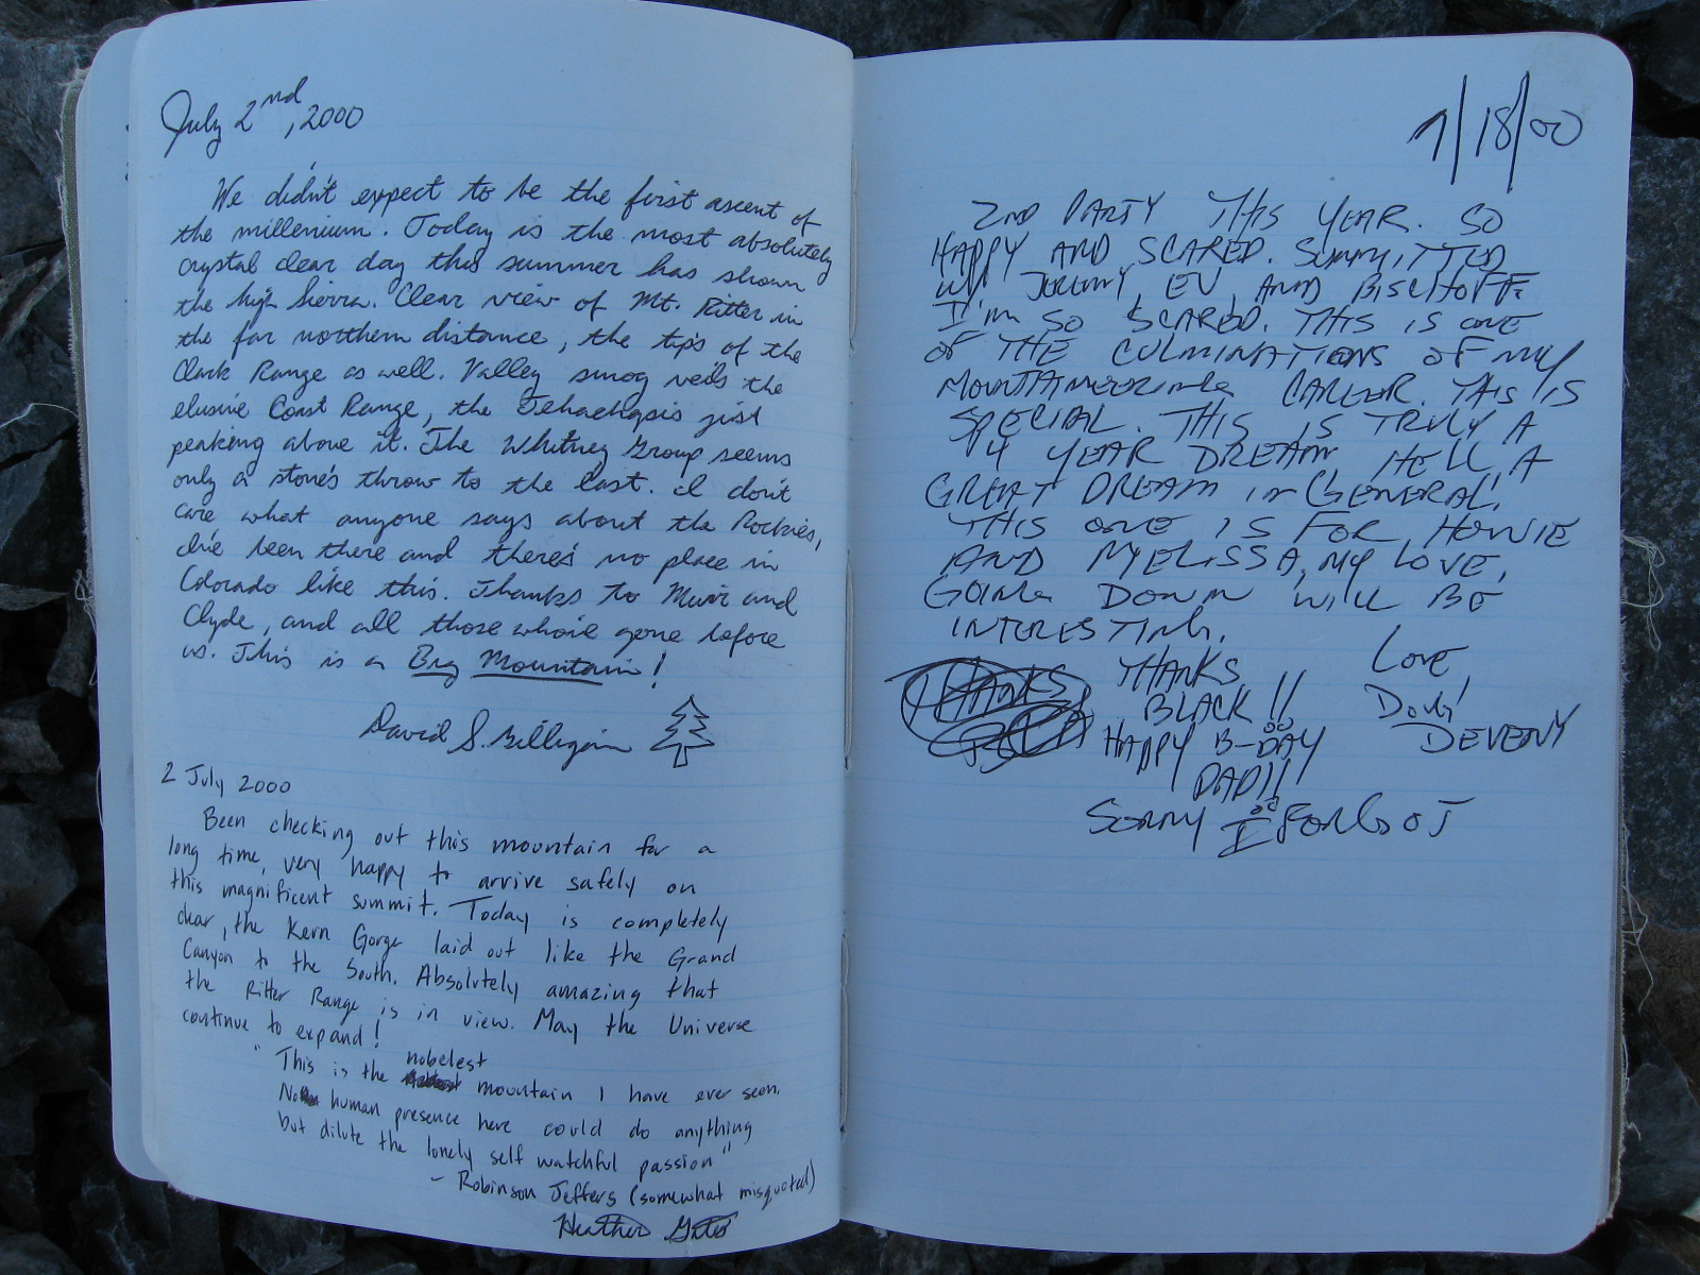 July 2nd, 2000
We didn't expect to be the first ascent of
the millenium. Today is the most absolutely
crystal clear day this summer has shown
the high Sierra. Clear view of Mt. Ritter in
the far northern distance, the tips of the
Clark Range as well. Valley smog veils the
elusive Coast Range, the Tehachapis just
peaking above it. The Whitney Group seems
only a stone's throw to the East. I don't
care what anyone says about the Rockies,
I've been there and there's no place in
Colorado like this. Thanks to Muir and
Clyde, and all those who've gone before
us. This is a Big Mountain!
David S. Gilligan
2 July 2000
Been checking out this mountain for a
long time, very happy to arrive safely on
this magnificent summit. Today is completely
clear, the Kern Gorge laid out like the Grand
Canyon to the South. Absolutely amazing that
the Ritter Range is in view. May the Universe
continue to expand!
"This is the nobelest mountain I have ever seen.
No human presence here could do anything
but dilute the lonely self watchful passion"
- Robinson Jeffers (somewhat misquoted)
Heather Gates
7/18/00
2ND PARTY THIS YEAR. SO
HAPPY AND SCARED. SUMMITTED
W/ JEREMY, EV, AND BISCHOFF.
I'm SO SCARED. THIS IS ONE
OF THE CULMINATIONS OF MY
MOUNTAINEERING CAREER. THIS IS
SPECIAL. THIS IS TRULY A
4 YEAR DREAM, HELL, A
GREAT DREAM IN GENERAL.
THIS ONE IS FOR HOWIE
AND MYELISSA, MY LOVE,
GOING DOWN WILL BE
INTERESTING.
THANKS
THANKS
BLACK!!
HAPPY B-DAY
DAD!!
SORRY I FORGOT
Love,
Doug
DEVENY